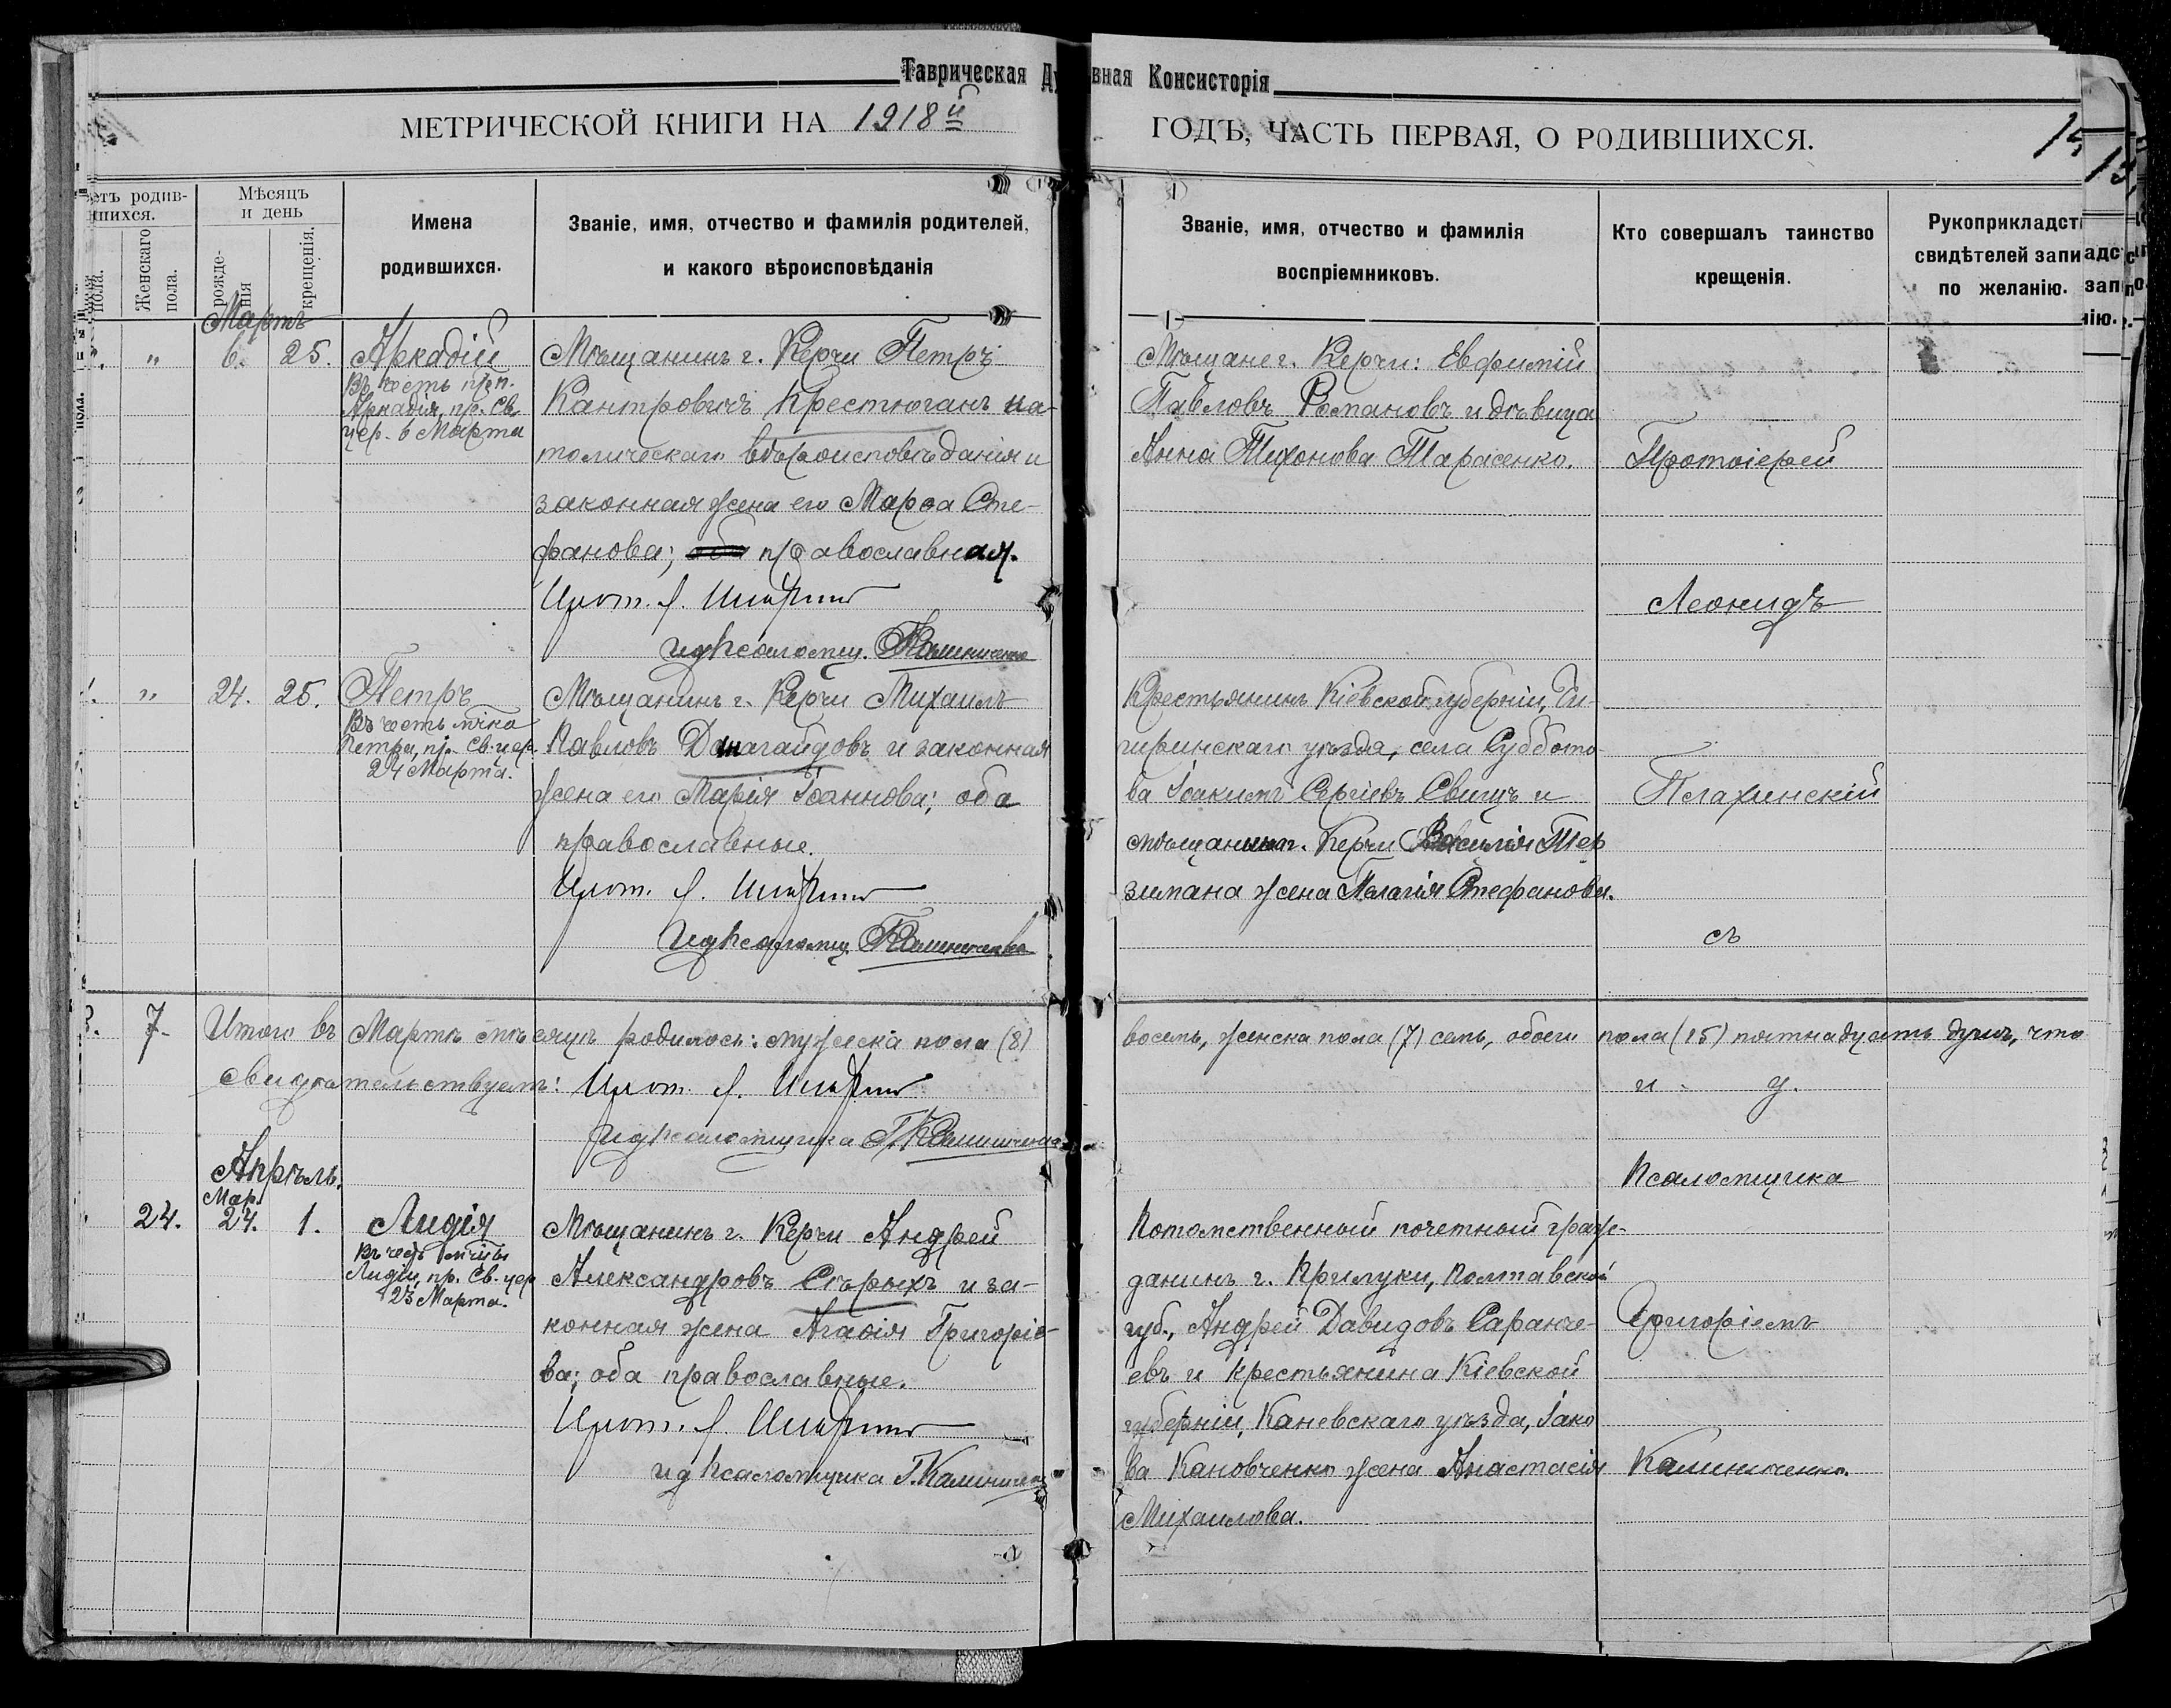 Таврическая Ду вная Консисторія
МЕТРИЧЕСКОЙ КНИГИ НА 1918й
ГОДЪ, ЧАСТЬ ПЕРВАЯ, О РОДИВШИХСЯ.
етъ родив-
шихся.
пола.
Женскаго
пола.
Мѣсяцъ
и день
рожде-
нія
крещенія.
Имена
родившихся.
Званіе, имя, отчество и фамилія родителей,
и какого вѣроисповѣданія
Званіе, имя, отчество и фамилія
воспріемниковъ.
Кто совершалъ таинство
крещенія.
Рукоприкладст
свидѣтелей запи
по желанію.
Мартъ
" 6. 25.
Аркадій
Въ честь прп.
Аркадія, пр. Св.
цер. 6 Марта
Мѣщанинъ г. Керчи Петръ
Кантровичъ Крестюганъ ка-
толическаго вѣроисповѣданія и
законная жена его Марѳа Сте-
фанова; оба православная.
Прот. Л.
и д псаломщ. Калиниченко
Мѣщане г. Керчи: Евфимій
Павловъ Романовъ и дѣвица
Анна Тихонова Тарасенко.
Протоіерей
Леонидъ
" 24. 25.
Петръ
Въ честь мчка
Петра, пр. Св. цер.
24 Марта.
Мѣщанинъ г. Керчи Михаилъ
Павловъ и законная
жена его Марія Іоаннова; оба
православные.
Прот. Л.
и д псаломщ. Калиниченко
Крестьянинъ Кіевской губерніи, Чи-
гиринскаго уѣзда, села Суббото-
ва Іоакимъ Сергіевъ Свищъ и
г. Керчи Василія Тер
зимана жена Пелагія Стефанова.
Плахинскій
съ
7. Итого въ Мартѣ мѣсяцѣ родилось: мужеска пола (8)
восемь, женска пола (7) семь, обоего пола (15) пятнадцать душъ, что
свидѣтельствуемъ: Прот. Л.
и д псаломщика Г. Калиниченко
и. д.
Псаломщика
Апрѣль.
Мар.
24. 24. 1.
Лидія
Въ честь мчцы
Лидіи, пр. Св. цер.
23 Марта.
Мѣщанинъ г. Керчи Андрей
Александровъ Сѣрыхъ и за-
конная жена Агаѳія Григоріе-
ва; оба православные.
Прот. Л.
и д псаломщика Г. Калиниченко
Потомственный почетный граж-
данинъ г. Прилуки, Полтавской
губ., Андрей Давидовъ Саранче-
евъ и крестьянина Кіевской
губерніи, Каневскаго уѣзда, Іако
ва Кановченко жена Анастасія
Михаилова.
Григоріемъ
Калиниченко.